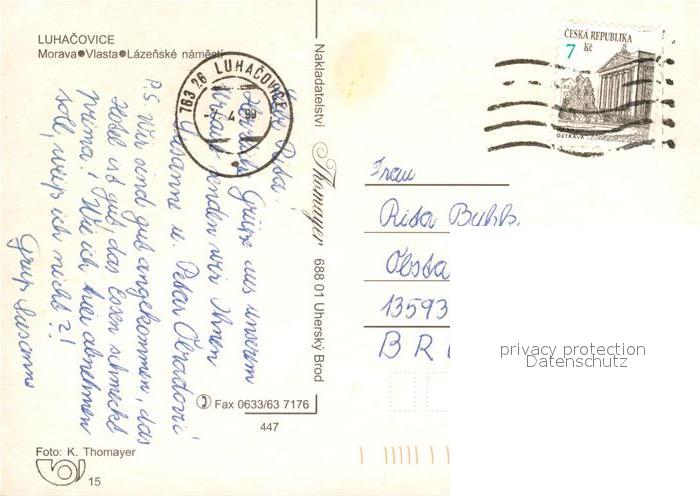 LUHAČOVICE
Morava●Vlasta●Lázeňské náměstí
763 26 LUHAČOVICE
4 99
ČESKÁ REPUBLIKA
7 Kč
OSTRAVA
Nakladatelství Thomayer 688 01 Uherský Brod
Fax 0633/63 7176
447
Liebe Rita!
Herzliche Grüße aus unserem
Urlaub senden wir Ihnen
Susanne u. Petar Obradović
P.S. Wir sind gut angekommen, das
Hotel ist gut, das Essen schmeckt
prima! Wie ich hier abnehmen
soll, weiß ich nicht?!
Gruß Susanne
Frau
Rita
Obsta
13593
B R
privacy protection
Datenschutz
Foto: K. Thomayer
15